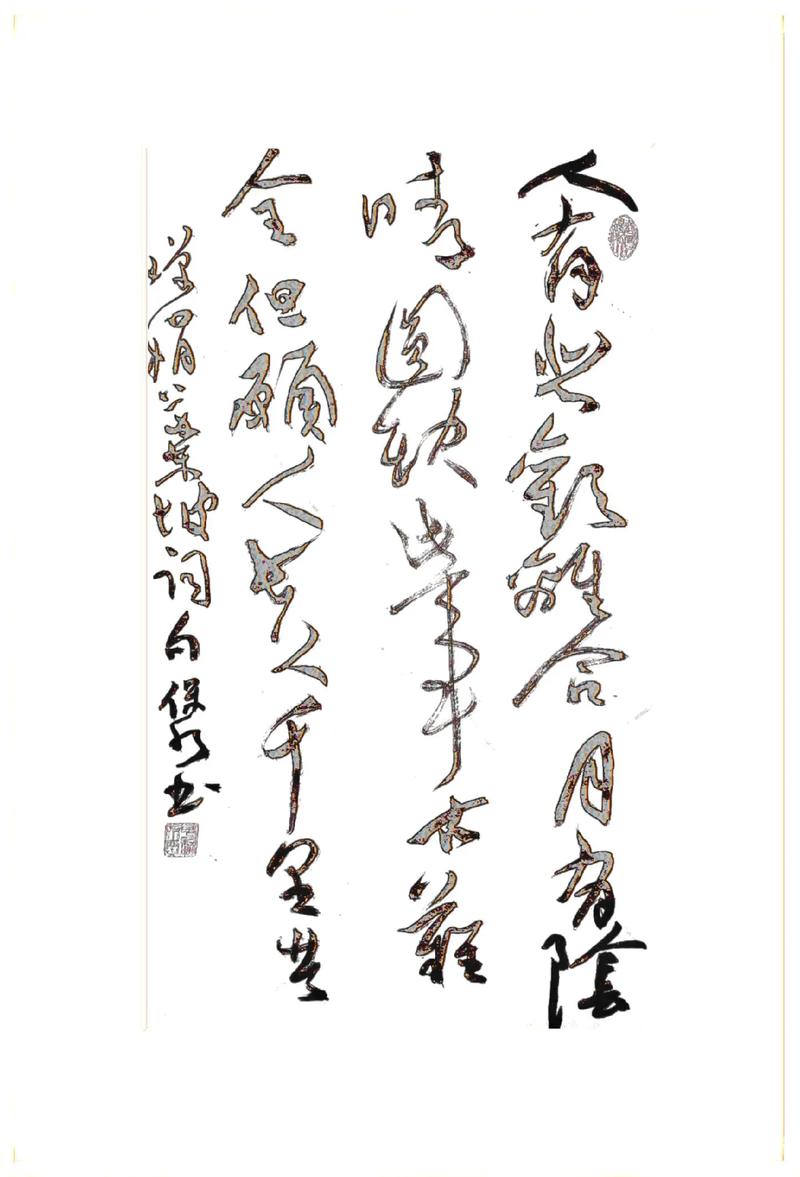 人有悲歡離合月有陰
晴圓缺此事古難
全但願人長久千里共
嬋娟 蘇東坡詞 白书